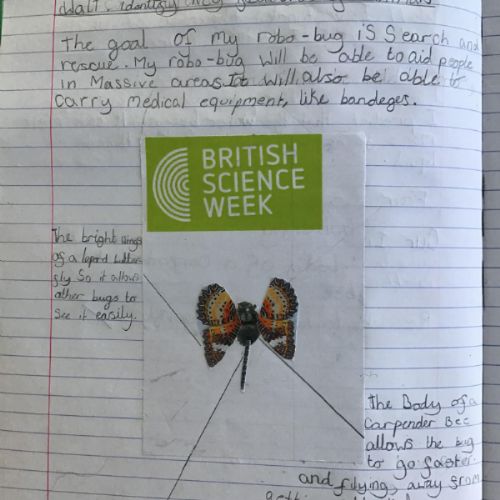 The goal of my robo-bug is Search and
rescue. My robo-bug will be able to aid people
in Massive areas. It will also be able to
Carry Medical equipment, like bandeges.
BRITISH
SCIENCE
WEEK
The bright wings
of a lepord butter
fly So it allows
other bugs to
See it easily.
the Body of a
Carpender Bee
allows the bug
to go faster
and flying, away from